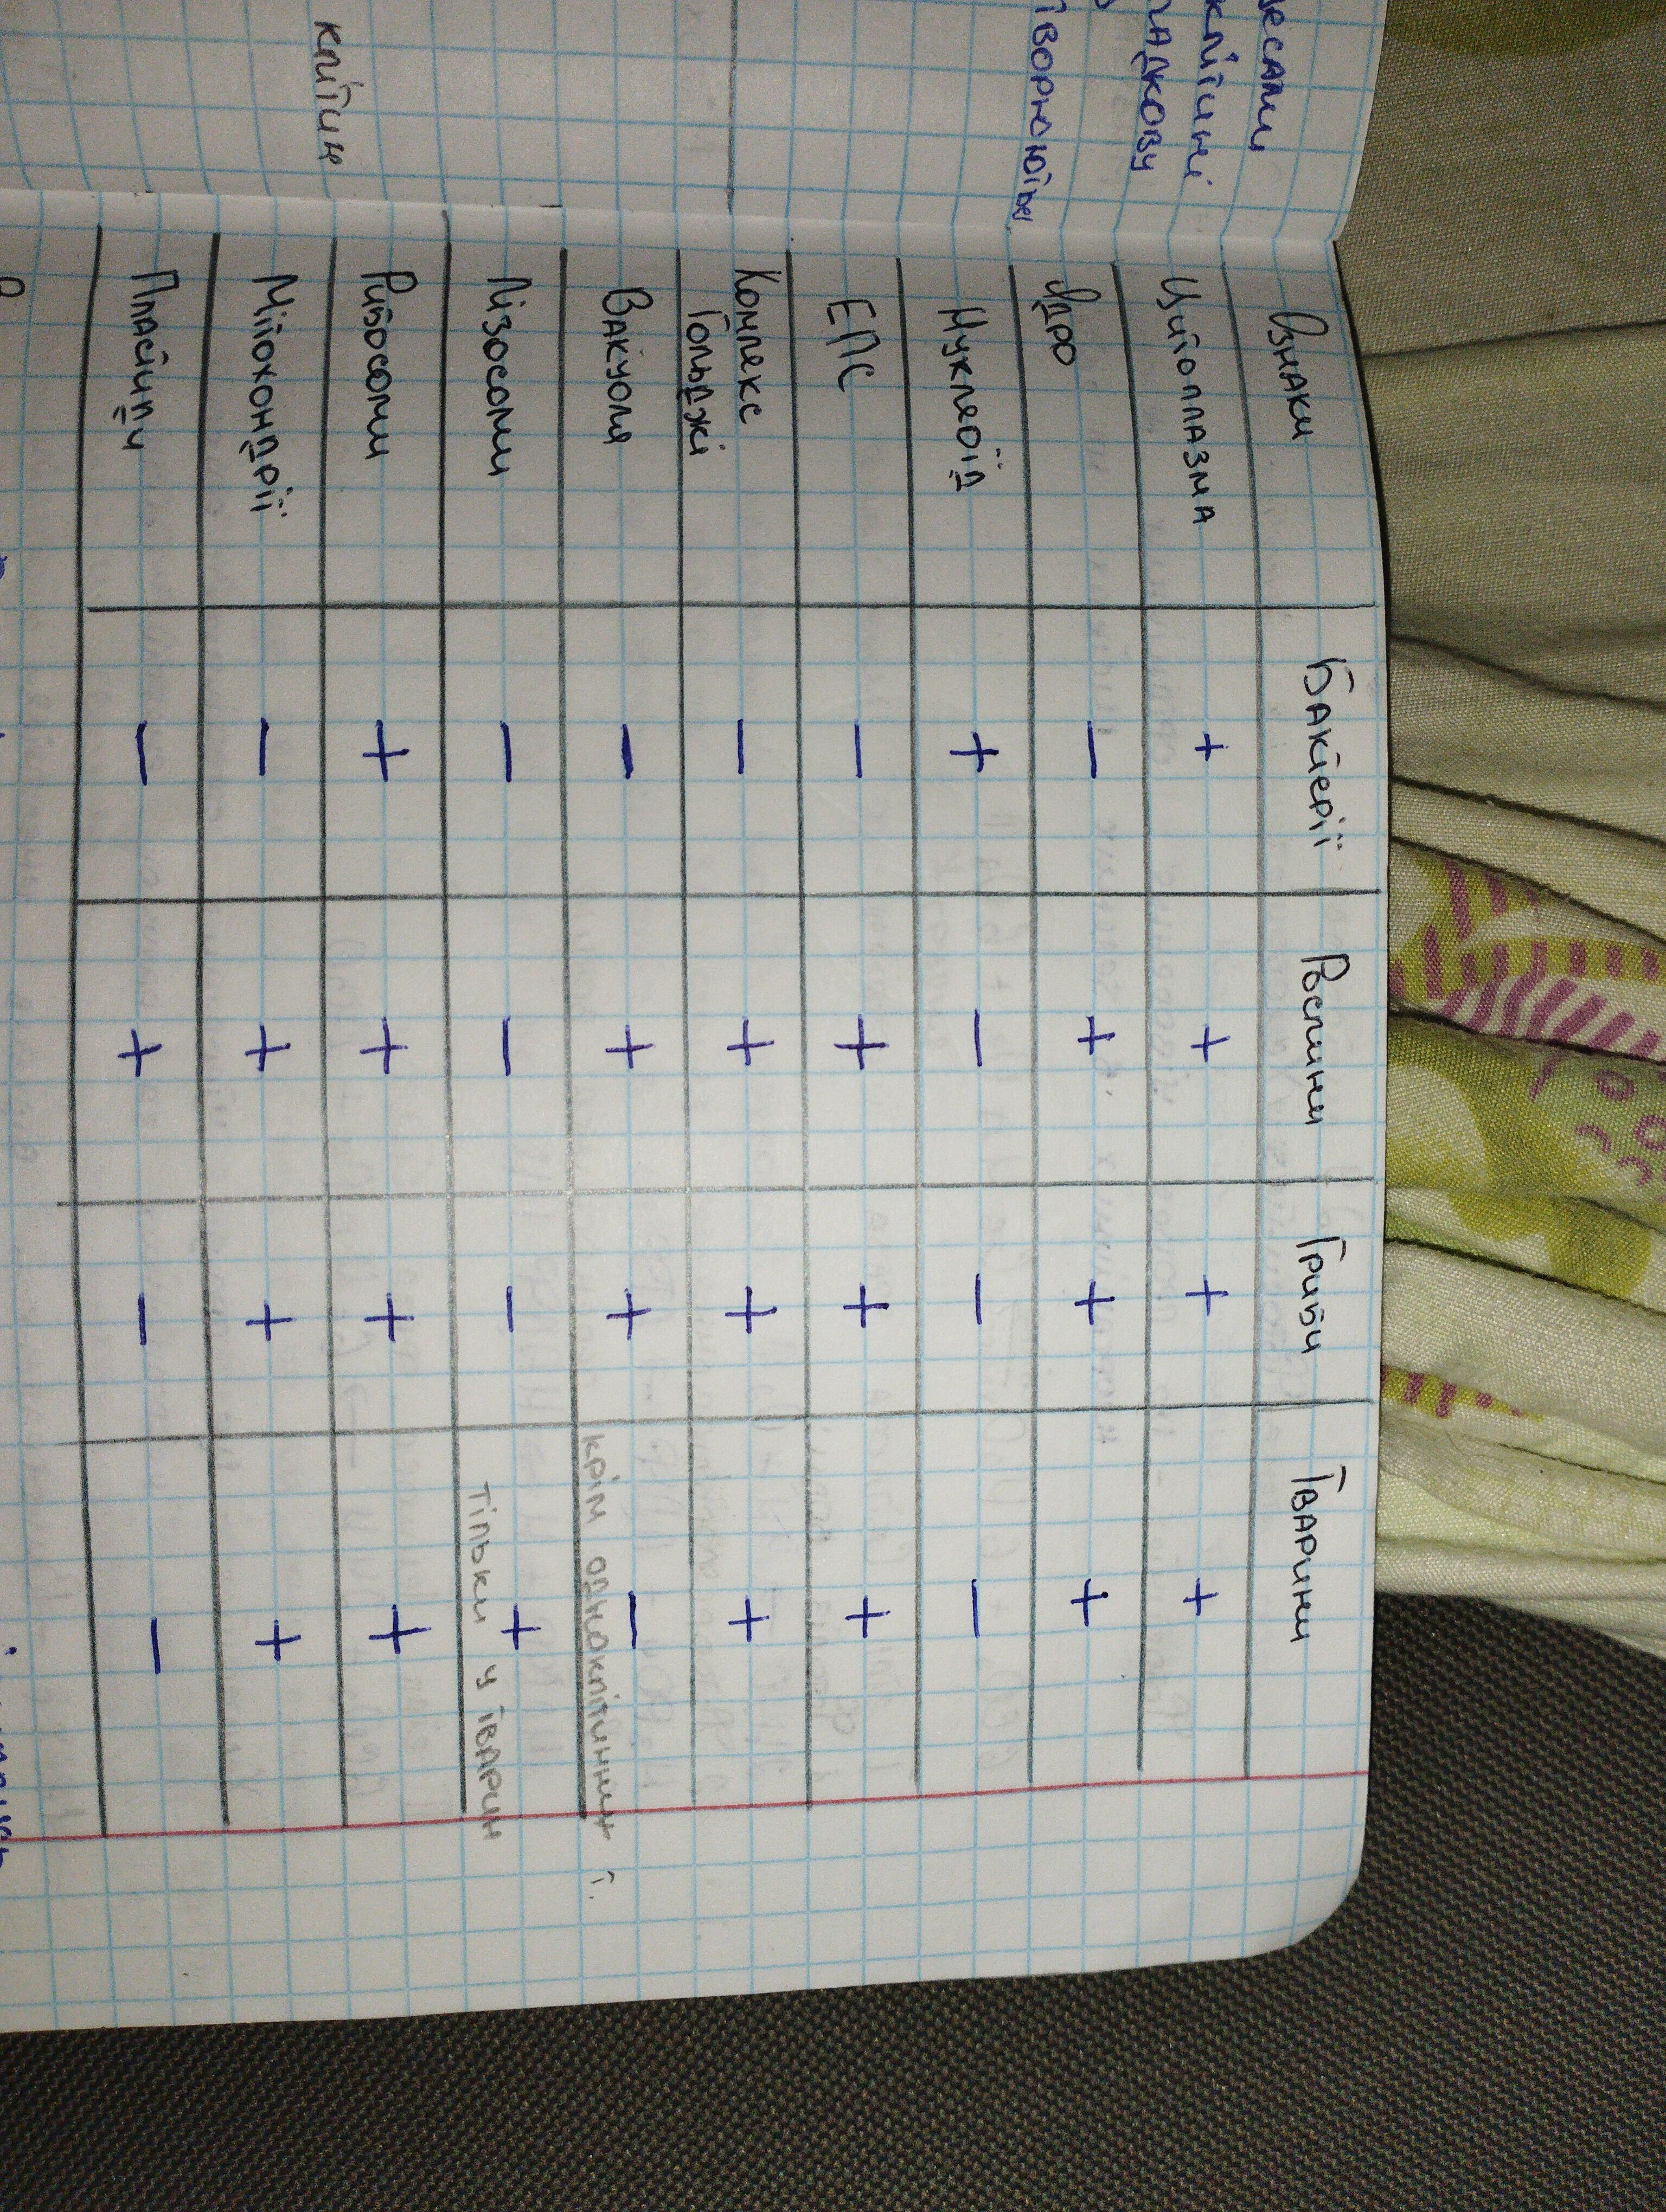 клітинні
творюють
клітин
Ознаки Бактерії Рослини Гриби Тварини
Цитоплазма + + + +
Ядро - + + +
Нуклеоїд + - - -
ЕПС - + + +
Комплекс - + + +
Гольджі
Вакуоля - + + -
крім одноклітинних т.
Лізосоми - - - +
тільки у тварин
Рибосоми + + + +
Мітохондрії - + + +
Пластиди - + - -